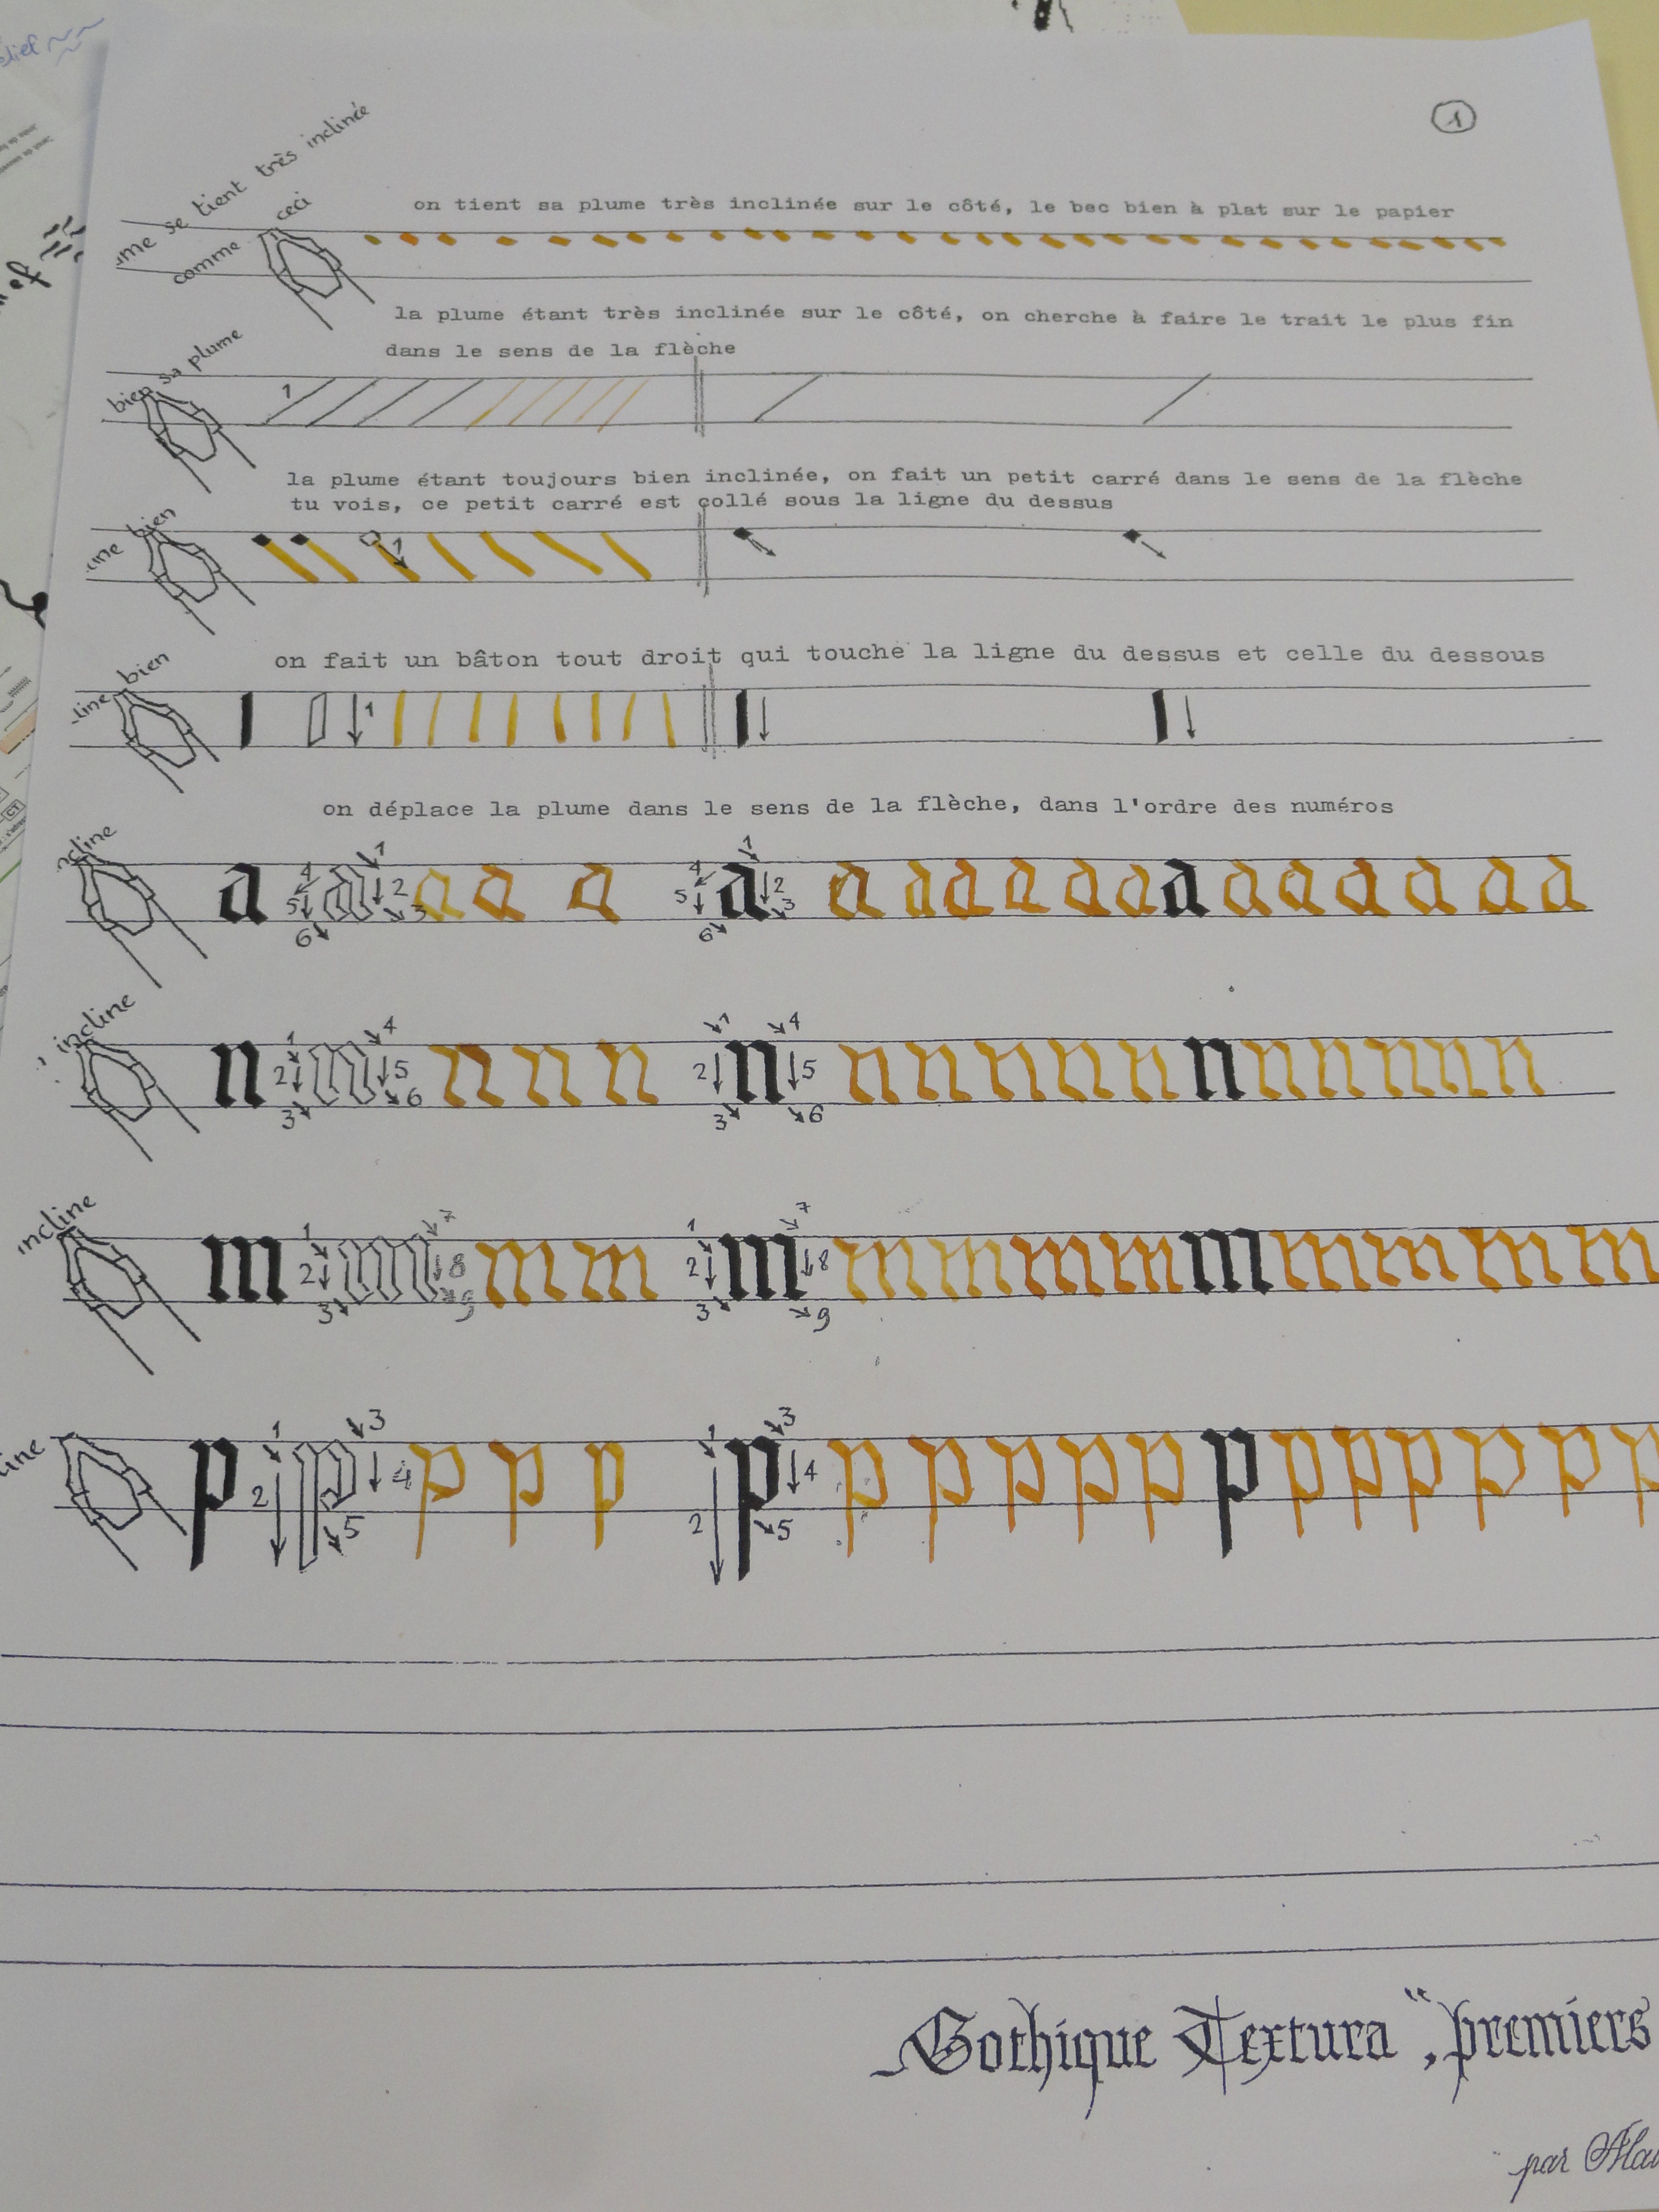 1
se tient très inclinée
comme ceci
on tient sa plume très inclinée sur le côté, le bec bien à plat sur le papier
la plume étant très inclinée sur le côté, on cherche à faire le trait le plus fin
dans le sens de la flèche
bien sa plume
1
la plume étant toujours bien inclinée, on fait un petit carré dans le sens de la flèche
tu vois, ce petit carré est collé sous la ligne du dessus
bien
1
on fait un bâton tout droit qui touche la ligne du dessus et celle du dessous
bien
1
on déplace la plume dans le sens de la flèche, dans l'ordre des numéros
a 4 5 6 a 1 2 3 a a a 4 5 6 a 1 2 3 a a a a a a a a a a a a a
incline
n 1 2 3 n 4 5 6 n n n 1 2 3 n 4 5 6 n n n n n n n n n n n
incline
m 1 2 3 m 7 8 9 m m 1 2 3 m 7 8 9 m m m m m m m m m
p 1 2 p 3 4 5 p p p 1 2 p 3 4 5 p p p p p p p p p p p p
Gothique Textura ", premiers
par